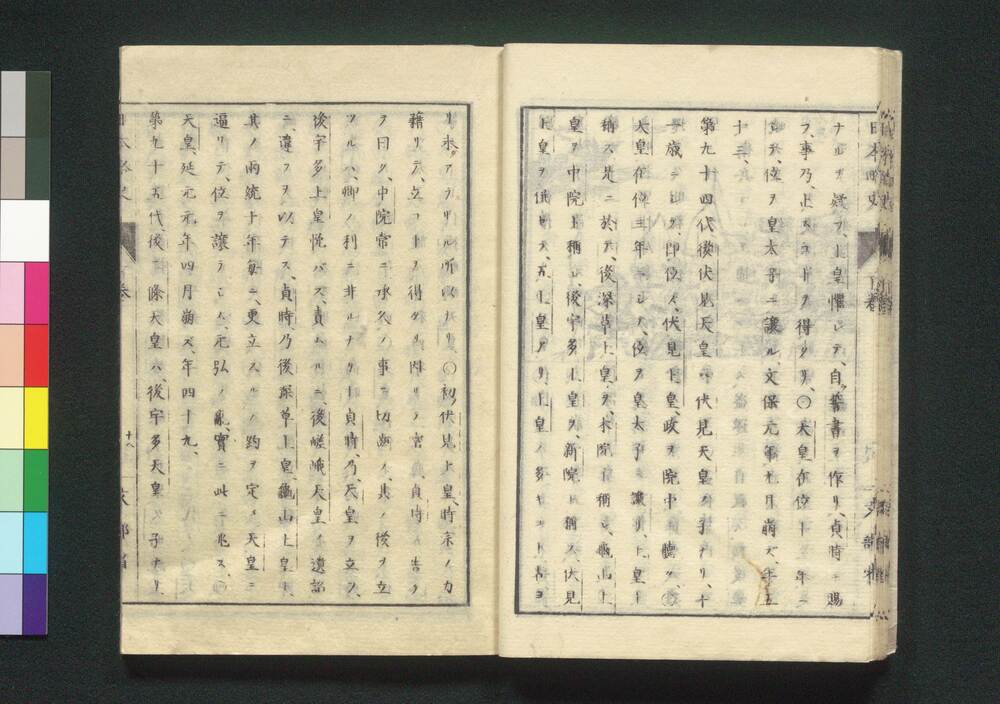 ナルヲ疑フ、上皇懼レテ、自誓書ヲ作リ、貞時ニ賜
フ、事乃、止ムコトヲ得タリ、〇天皇在位十一年ニ
シテ、位ヲ皇太子ニ譲ル文保元年九月崩ズ、年五
十三、
第九十四代後伏見天皇ハ伏見天皇ノ子ナリ、十
一歳ニシテ、即位ス、伏見上皇、政ヲ院中ニ聴ク、〇
天皇在位三年ニシテ、位ヲ皇太子ニ譲リ、上皇ト
稱ス、是ニ於テ、後深草上皇ヲ、本院ト稱シ、亀山上
皇ヲ中院ト稱シ、後宇多上皇ヲ、新院ト稱ス、伏見
上皇ヲ併セテ、五上皇アリ、上皇ノ多キコト、古ヨ
リ未ダアラザル所以ナリ、〇初伏見上皇時宗ノ力
藉リテ、立コトヲ得タリ、因リテ、密ニ貞時ニ告ゲ
ヲ曰ク、中院常ニ承久ノ事ニ切齒ス、其ノ後ヲ立
ツルハ、卿ノ利ニ非ルナリト、貞時、乃、天皇ヲ立ツ、
後宇多上皇悦バズ、責ムルニ、後嵯峨天皇ノ遺詔
ニ違フヲ以テス、貞時、乃後深草上皇、亀山上皇ト、
其ノ両統十年毎ニ、更立スルノ約ヲ定メ、天皇ニ
逼リテ、位ヲ譲ラシム、元弘ノ亂、實ニ此ニ兆ス、〇
天皇延元元年四月崩ズ、年四十九、
第九十五代、後二條天皇ハ、後宇多天皇ノ子ナリ、